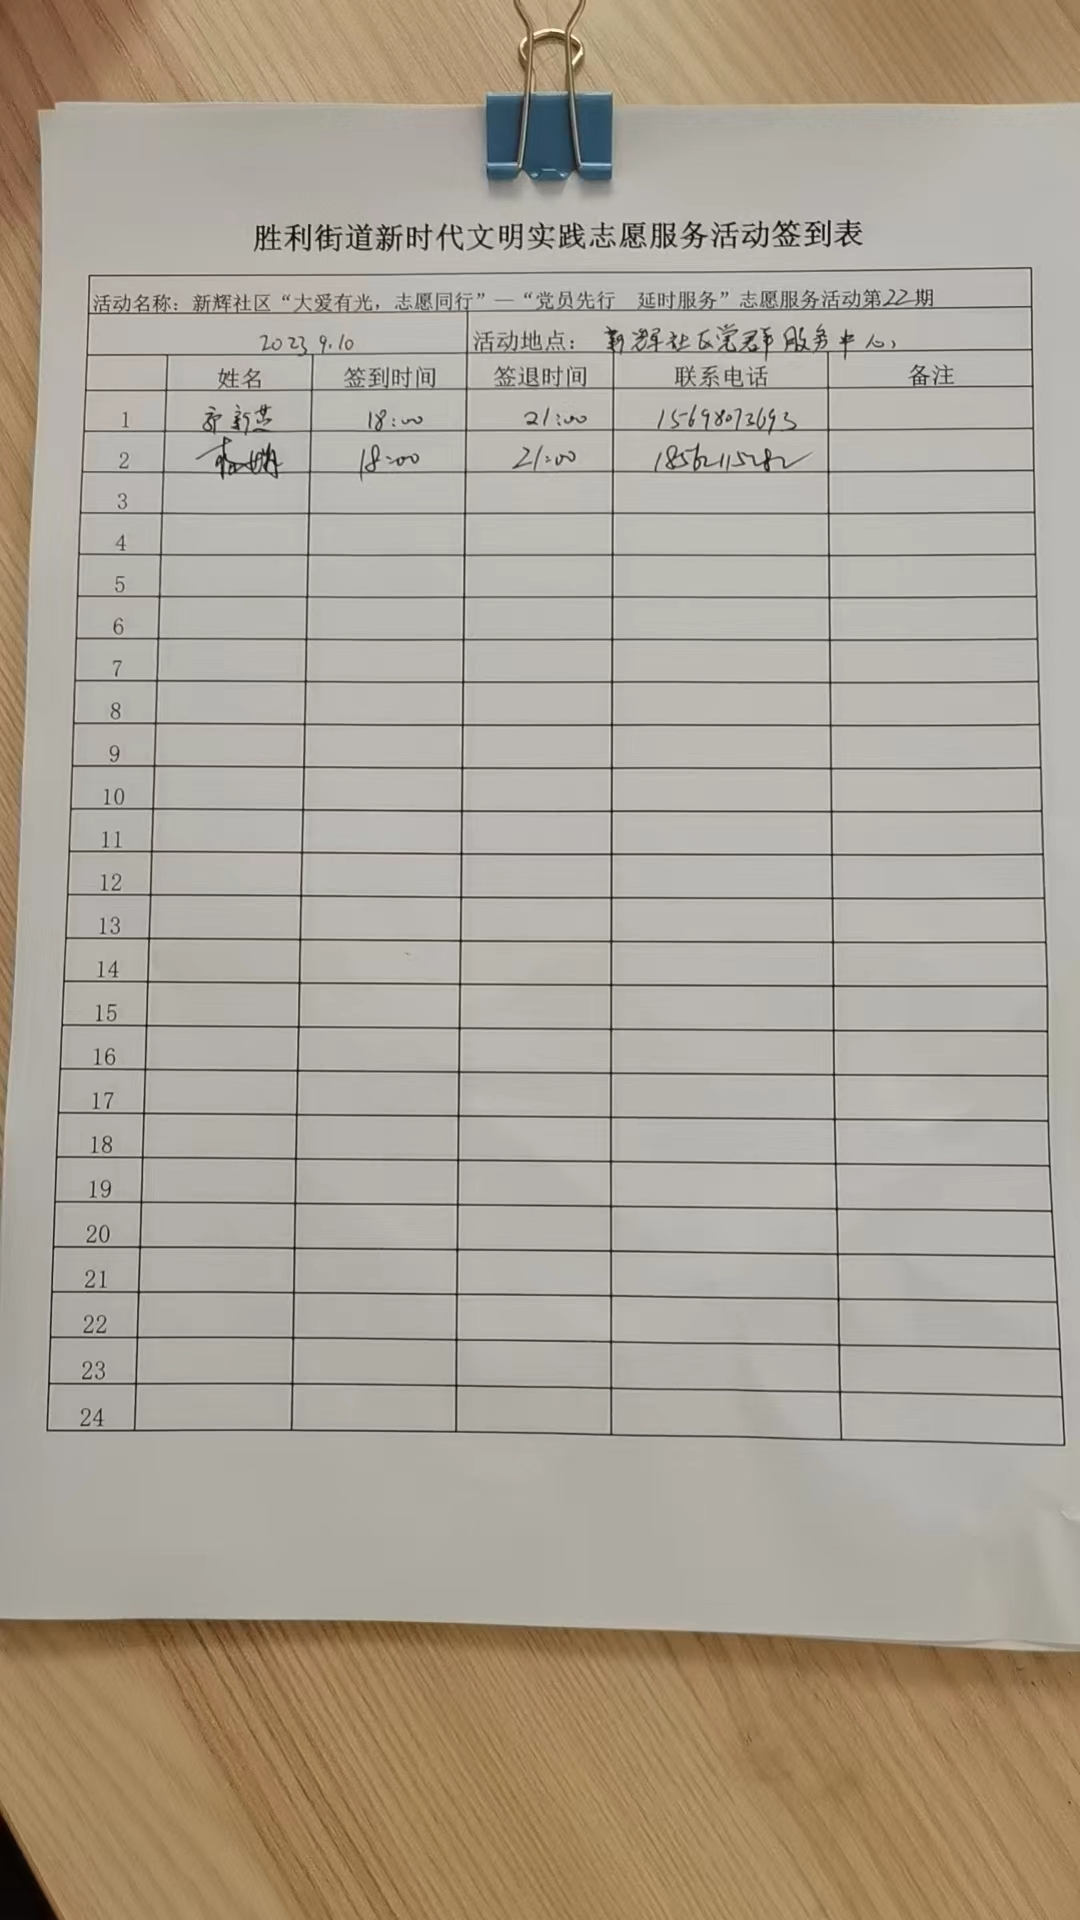 胜利街道新时代文明实践志愿服务活动签到表
活动名称：新辉社区“大爱有光，志愿同行”—“党员先行 延时服务”志愿服务活动第22期
2023.9.10 活动地点：新辉社区党群服务中心
姓名 签到时间 签退时间 联系电话 备注
1 新燕 18:00 21:00 15698073693
2 18:00 21:00
3
4
5
6
7
8
9
10
11
12
13
14
15
16
17
18
19
20
21
22
23
24